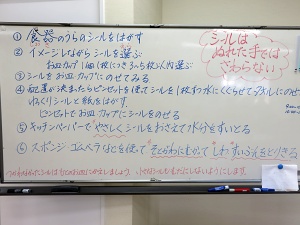 ① 食器のうらのシールをはがす
② イメージしながらシールを選ぶ
お皿・カップ1個(1枚)につき3〜5枚以内選ぶ
③ シールをお皿・カップにのせてみる
④ 配置が決まったらピンセットを使ってシールを1枚ずつ水にくぐらせてタオルにのせ
ゆっくりシールと紙をはがす。
ピンセットでお皿・カップにシールをのせる
⑤ キッチンペーパーでやさしくシールをおさえて水分をすいとる
⑥ スポンジ・ゴムベラなどを使ってそとがわにむかってしわ・すいぶんをとりきる
シールは
ぬれた手では
さわらない
つかわなかったシールはもとのお皿にかえしましょう